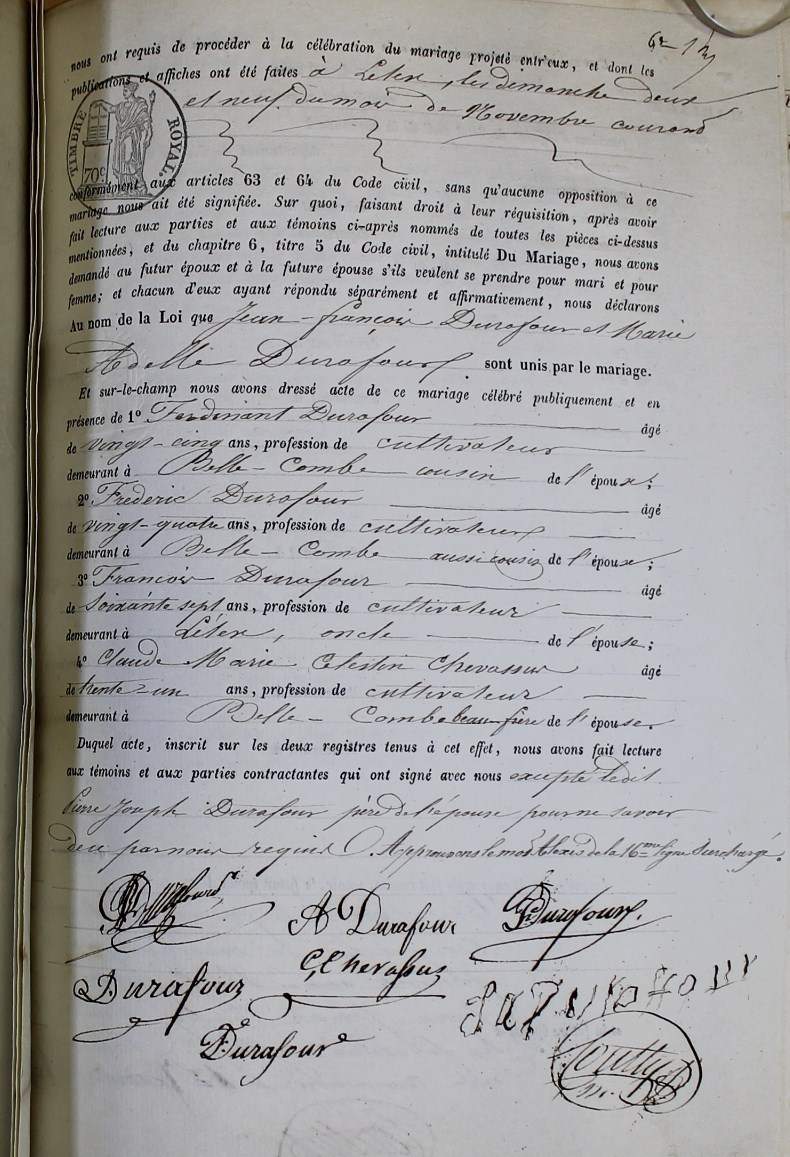 nous ont requis de procéder à la célébration du mariage projeté entr'eux, et dont les
publications et affiches ont été faites à Lélex, les dimanche deux
et neuf du mois de Novembre courant
TIMBRE ROYAL
70 c
conformément aux articles 63 et 64 du Code civil, sans qu'aucune opposition à ce
mariage nous ait été signifiée. Sur quoi, faisant droit à leur réquisition, après avoir
fait lecture aux parties et aux témoins ci-après nommés de toutes les pièces ci-dessus
mentionnées, et du chapitre 6, titre 5 du Code civil, intitulé Du Mariage, nous avons
demandé au futur époux et à la future épouse s'ils veulent se prendre pour mari et pour
femme; et chacun d'eux ayant répondu séparément et affirmativement, nous déclarons
Au nom de la Loi que Jean-françois Durafour et Marie
Adelle Durafour sont unis par le mariage.
Et sur-le-champ nous avons dressé acte de ce mariage célébré publiquement et en
présence de 1º Ferdinant Durafour âgé
de vingt-cinq ans, profession de cultivateur
demeurant à Belle-Combe cousin de l'épouse;
2º Frederic Durafour âgé
de vingt-quatre ans, profession de cultivateur
demeurant à Belle-Combe aussi cousin de l'épouse;
3º François Durafour âgé
de soixante sept ans, profession de cultivateur
demeurant à Lélex, oncle de l'épouse;
4º Claude Marie Celestin Chevassus âgé
de trente-un ans, profession de cultivateur
demeurant à Belle-Combe beau-frère de l'épouse.
Duquel acte, inscrit sur les deux registres tenus à cet effet, nous avons fait lecture
aux témoins et aux parties contractantes qui ont signé avec nous excepté ledit
Pierre Joseph Durafour père de l'épouse pour ne savoir
de ce par nous requis. Approuvons le mot Alexis de la 16me ligne surchargé.
A Durafour
F Durafour
C, Chevassus
Durafour
Durafour